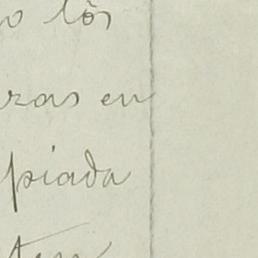 o los
ras en
piada